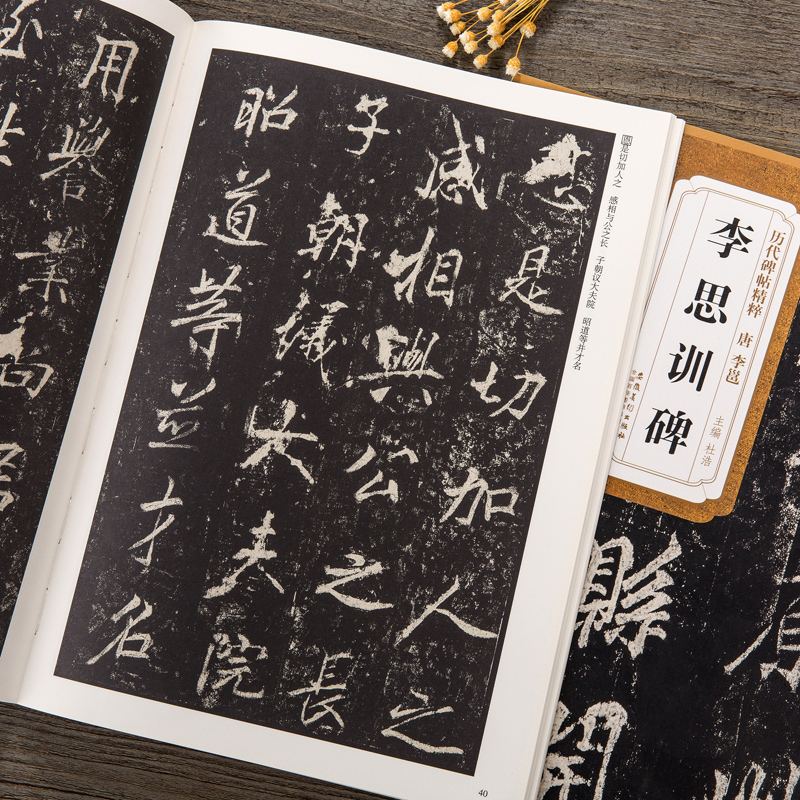 是切加人之
感相與公之長
子朝議大夫院
昭道等並才名
是切加人之 感相与公之长 子朝议大夫院 昭道等并才名
40
用譽業尚
历代碑帖精粹 唐 李邕
李思训碑
主编 杜浩
縣